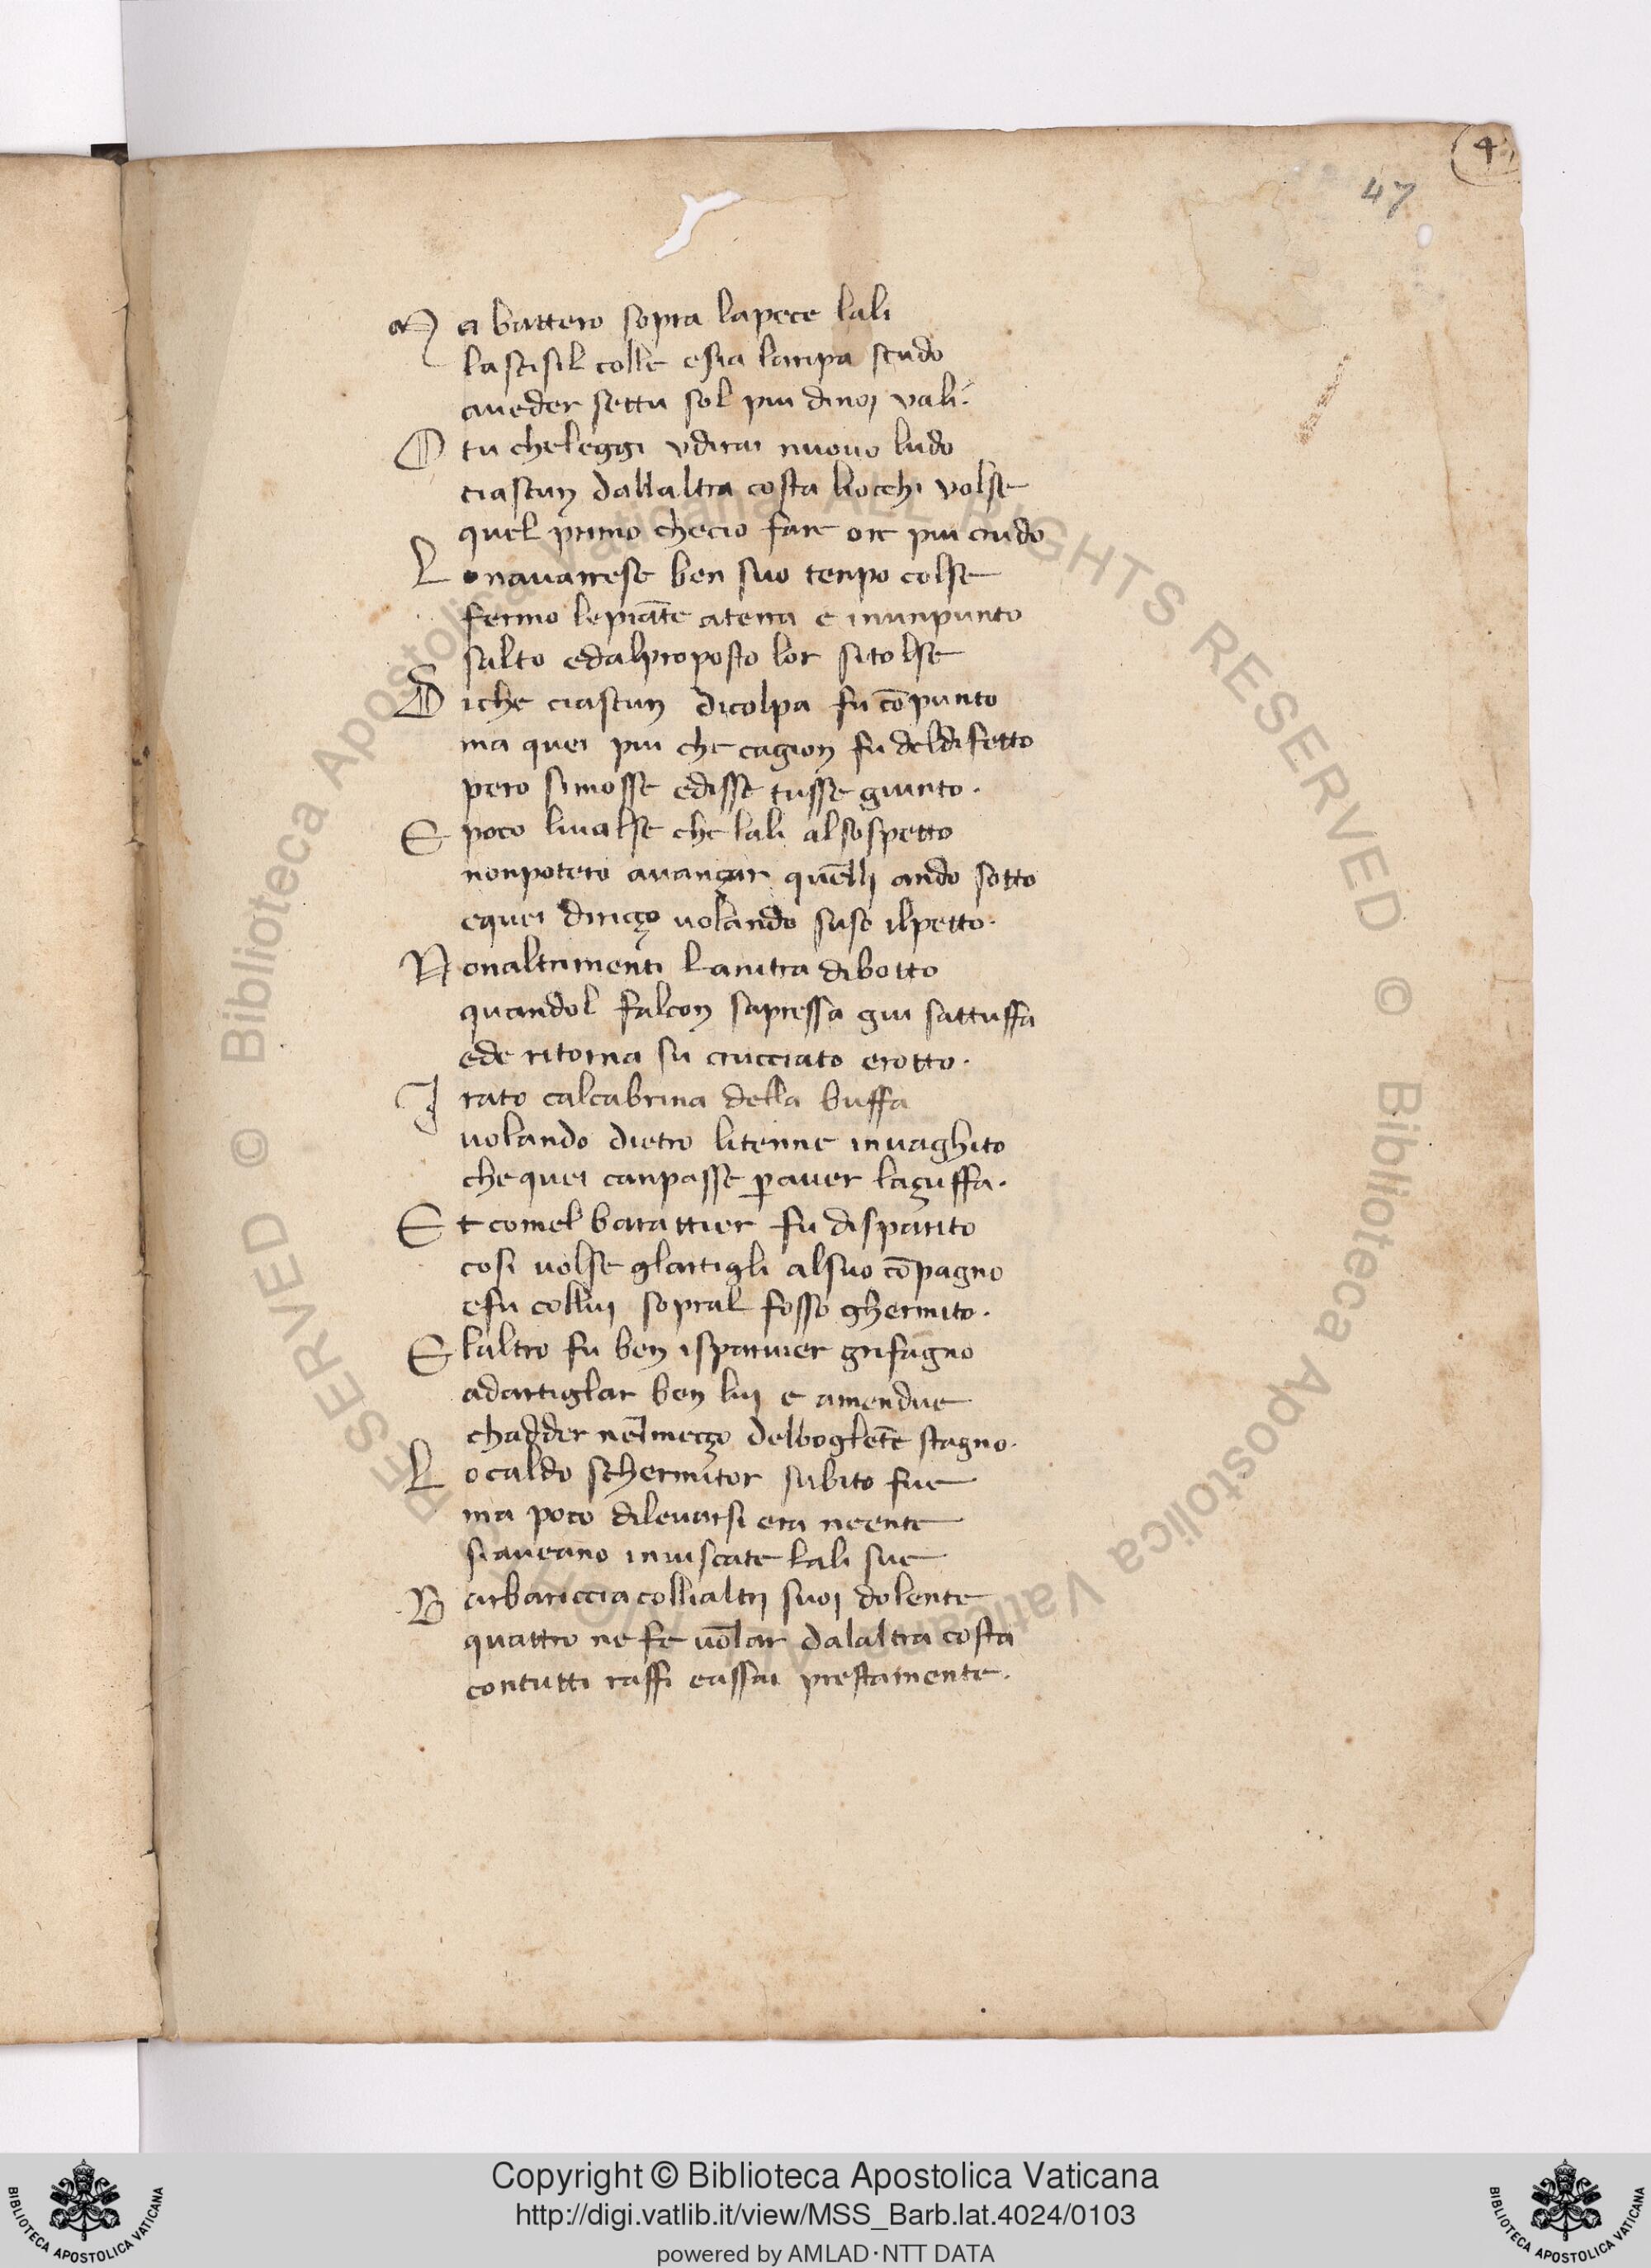 4
47
Ma battero sopra lapece lali
lascisil colle esia laripa scudo
aueder settu sol piu dinoj vali.
O tu cheleggi vdirai nuouo ludo
ciascun dallaltra costa liocchi volse
quel primo checio fare ore piu crudo
Lonauarrese ben suo tenpo colse
fermo lepiāte aterra e inunpunto
salto edalproposto lor sitolse
Diche ciascun dicolpa fu cōpunto
ma quei piu che cagion fu deldifetto
pero simosse edisse tusse giunto.
E poco liualse che lali alsospetto
nonpotero auançar quēllj ando sotto
equei diriçço uolando suso ilpetto.
Nonaltrimenti lanitra dibotto
quandol falcon sapressa giu sattuffa
ede ritorna su crucciato erotto.
Irato calcabrina della buffa
uolando dietro litenne inuaghito
chequei canpasse ꝑauer laçuffa.
Et comel barattier fu disparito
cosi uolse glartigli alsuo cōpagno
efu collui sopral fosso ghermito.
E laltro fu ben isparuier grifagno
adartiglar ben luj e amendue
chadder nelmeçço delboglētē stagno.
Localdo schermitor subito fue
ma poco dileuarsi era neente
siaueano inuiscate lali sue
Barbariccia collialtrj suoj dolente
quattro ne fe uolar dalaltra costa
contutti raffi eassai prestamente.
© Biblioteca Apostolica Vaticana ALL RIGHTS RESERVED © Biblioteca Apostolica Vaticana ALL RIGHTS RESERVED
BIBLIOTECA APOSTOLICA VATICANA
Copyright © Biblioteca Apostolica Vaticana
http://digi.vatlib.it/view/MSS_Barb.lat.4024/0103
powered by AMLAD·NTT DATA
BIBLIOTECA APOSTOLICA VATICANA